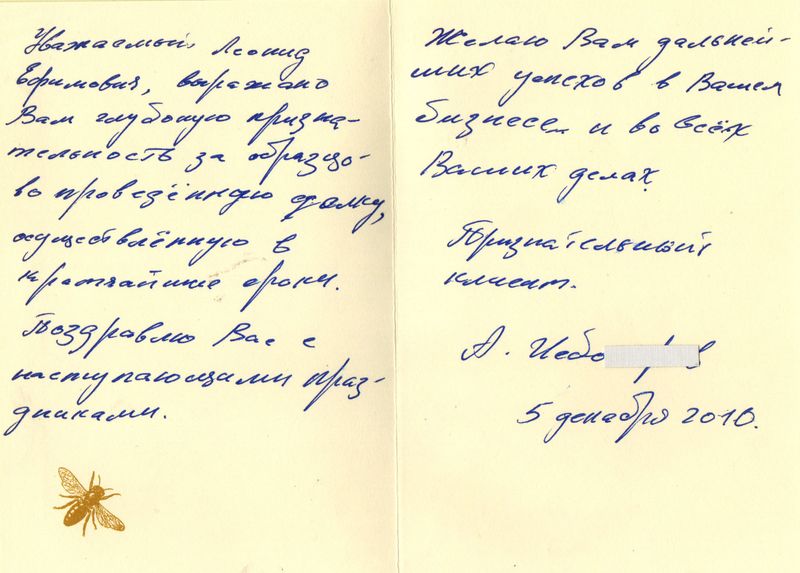 Уважаемый Леонид
Ефимович, выражаю
Вам глубокую призна-
тельность за образцо-
во проведённую сделку,
осуществлённую в
кратчайшие сроки.
Поздравлю Вас с
наступающими праз-
дниками.
Желаю Вам дальней-
ших успехов в Вашем
бизнесе и во всех
Ваших делах.
Признательный
клиент.
А.
5 декабря 2010.